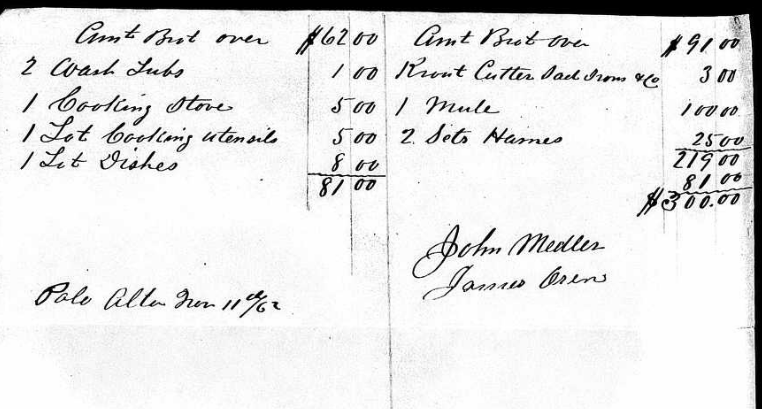 Amt Brot over $62 00
2 Wash Tubs 1 00
1 Cooking Stove 5 00
1 Lot Cooking utensils 5 00
1 Lot Dishes 8 00
81 00
Palo Alto 11th/62
Amt Brot over $91 00
Krout Cutter Sad Irons & Co 3 00
1 Mule 100 00
2 Sets Harnes 25 00
219 00
81 00
$300.00
John Medler
James Oren